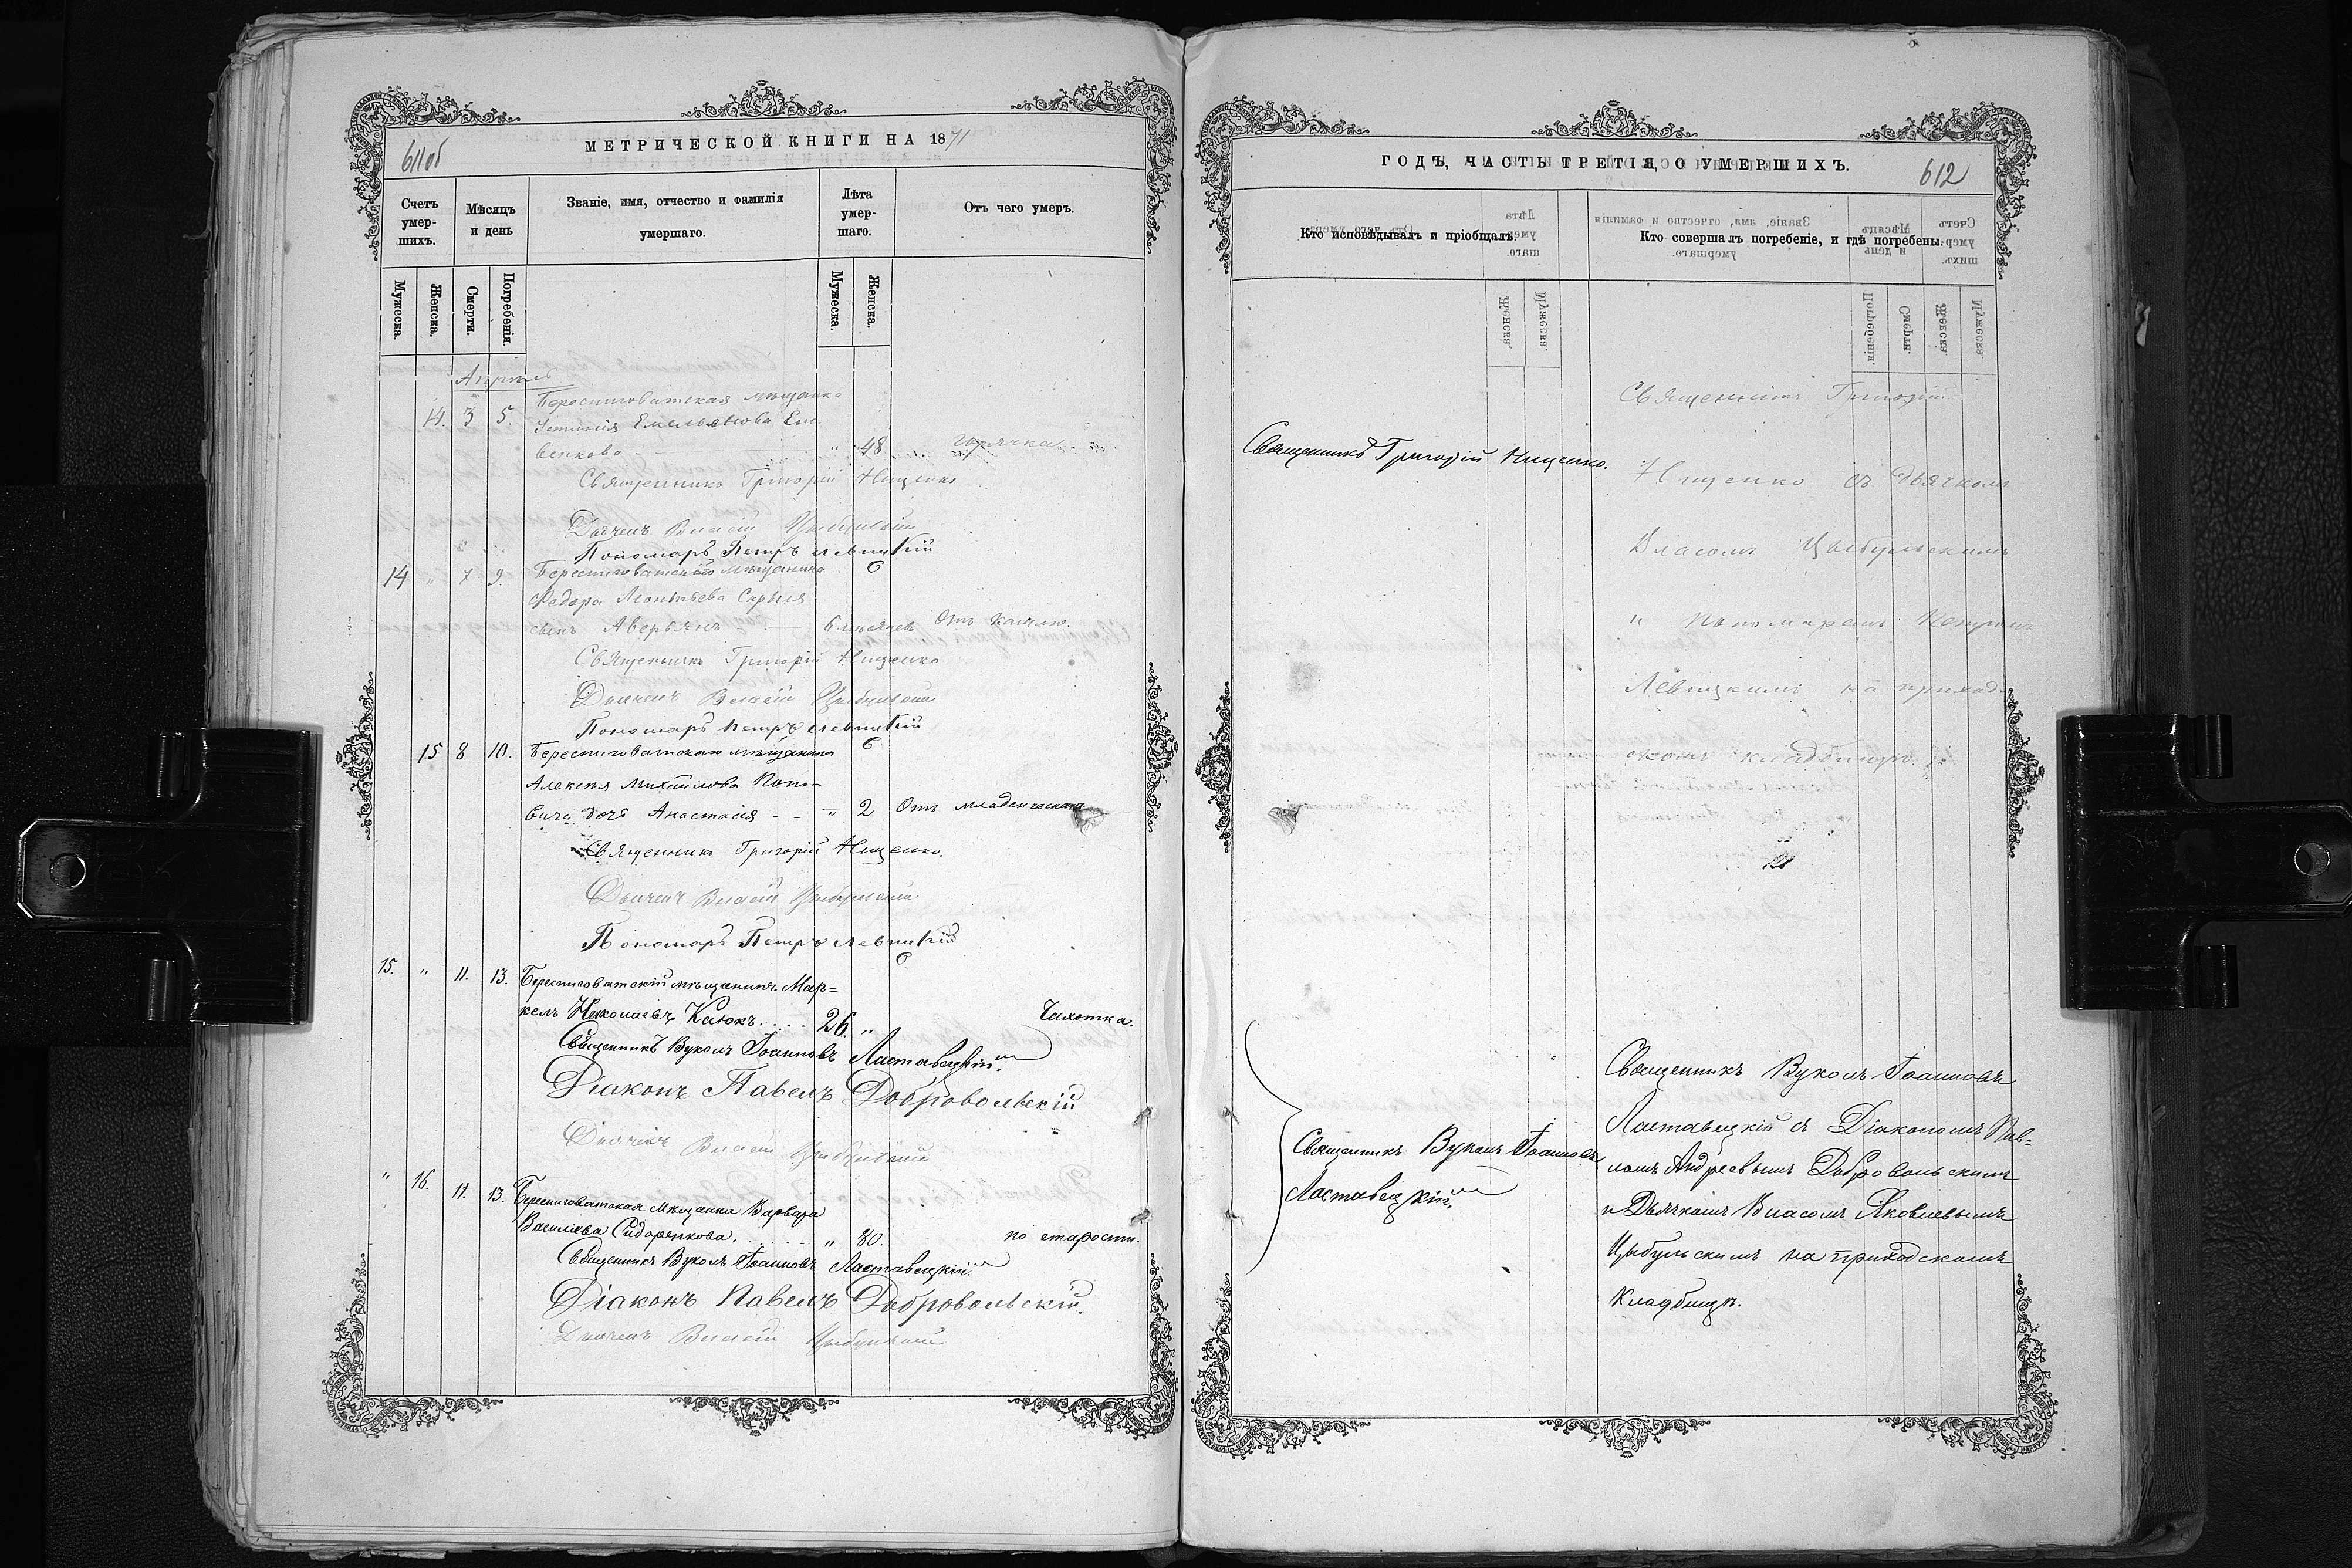 МЕТРИЧЕСКОЙ КНИГИ НА 1871
611об
Счетъ умер-шихъ.
Мѣсяцъ и день
Званіе, имя, отчество и фамилія умершаго.
Лѣта умер-шаго.
Отъ чего умеръ.
Мужеска.
Женска.
Смерти.
Погребенія.
Мужеска.
Женска.
Апрель
14. 3 5. Берестоватская мѣщанка
Устинія Емельянова
венкова - " 48 горячка
Священникъ Григорій Нищенко
Дьячекъ Власій Цыбульскій
Пономарь Петръ Левицкій
14 " 7 9. Берестоватскаго мѣщанина
Федора Леонтьева
сынъ Аверьянъ 6 мѣсяцев Отъ кашлю.
Священникъ Григорій Нищенко
Дьячекъ Власій Цыбульскій
Пономарь Петръ Левицкій
15 8 10. Берестоватскаго мѣщанина
Алексѣя Михайлова Попо-
вича дочь Анастасія - - " 2 Отъ младенческой
Священникъ Григорій Нищенко.
Дьячекъ Власій Цыбульскій
Пономарь Петръ Левицкій
15. " 11. 13. Берестоватскій мѣщанинъ Мар=
келъ Николаевъ Катокъ. . . . . 26. " Чахотка.
Священникъ Вуколъ Іоанновъ Ластавецкій.
Діаконъ Павелъ Добровольскій
Дьячекъ Власій Цыбульскій
" 16. 11. 13. Берестоватская мѣщанка Варвара
Василіева Сидоренкова. . . . . . . " 80. по старости.
Священникъ Вуколъ Іоанновъ Ластавецкій.
Діаконъ Павелъ Добровольскій.
Дьячекъ Власій Цыбульскій
ГОДЪ, ЧАСТЬ ТРЕТІЯ, О УМЕРШИХЪ.
612
Кто исповѣдывалъ и пріобщалъ.
Кто совершалъ погребеніе, и гдѣ погребены.
Священникъ Григорій Нищенко.
Священникъ Григорій
Нищенко съ дьячкомъ
Власомъ Цыбульскимъ
и пономаремъ Петромъ
Левицкимъ на приход-
скомъ кладбищѣ.
Священникъ Вуколъ Іоанновъ
Ластавецкій.
Священникъ Вуколъ Іоанновъ
Ластавецкій съ Діакономъ Пав=
ломъ Андреевымъ Добровольскимъ
и Дьячкомъ Власомъ Яковлевымъ
Цыбульскимъ на приходскомъ
Кладбищѣ.